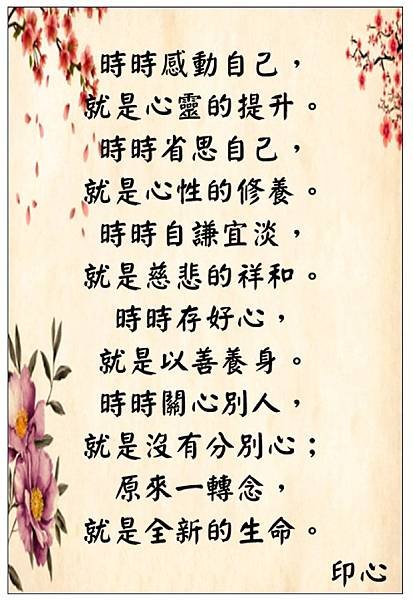 時時感動自己，
就是心靈的提升。
時時省思自己，
就是心性的修養。
時時自謙宜淡，
就是慈悲的祥和。
時時存好心，
就是以善養身。
時時關心別人，
就是沒有分別心；
原來一轉念，
就是全新的生命。
印心